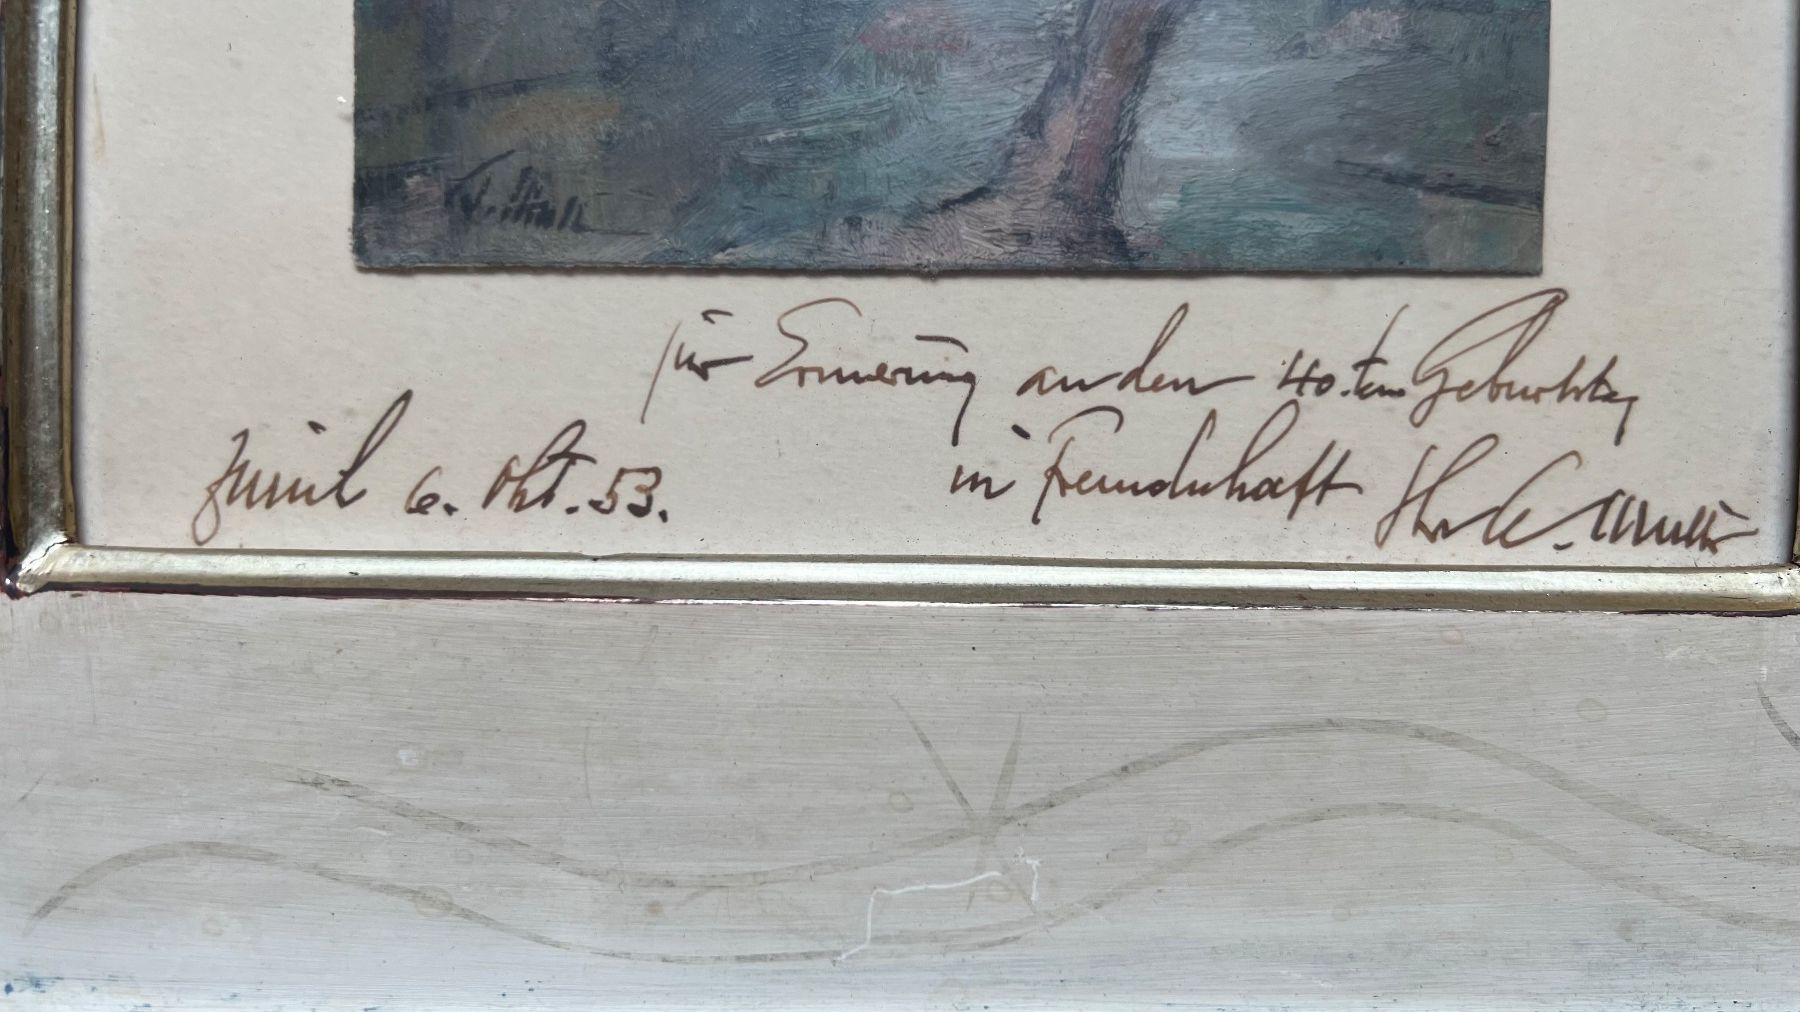 zur Erinnerung an den 40.ten Geburtstag
Zürich 6. Okt. 53.
in Freundschaft